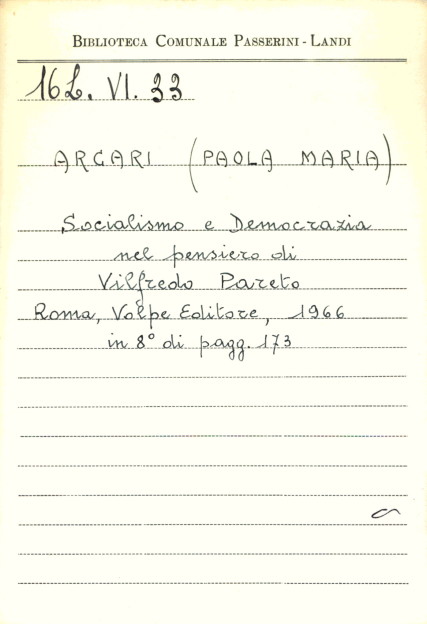 BIBLIOTECA COMUNALE PASSERINI - LANDI
16L. VI. 33
ARCARI (PAOLA MARIA)
Socialismo e Democrazia
nel pensiero di
Vilfredo Pareto
Roma, Volpe Editore, 1966
in 8° di pagg. 173